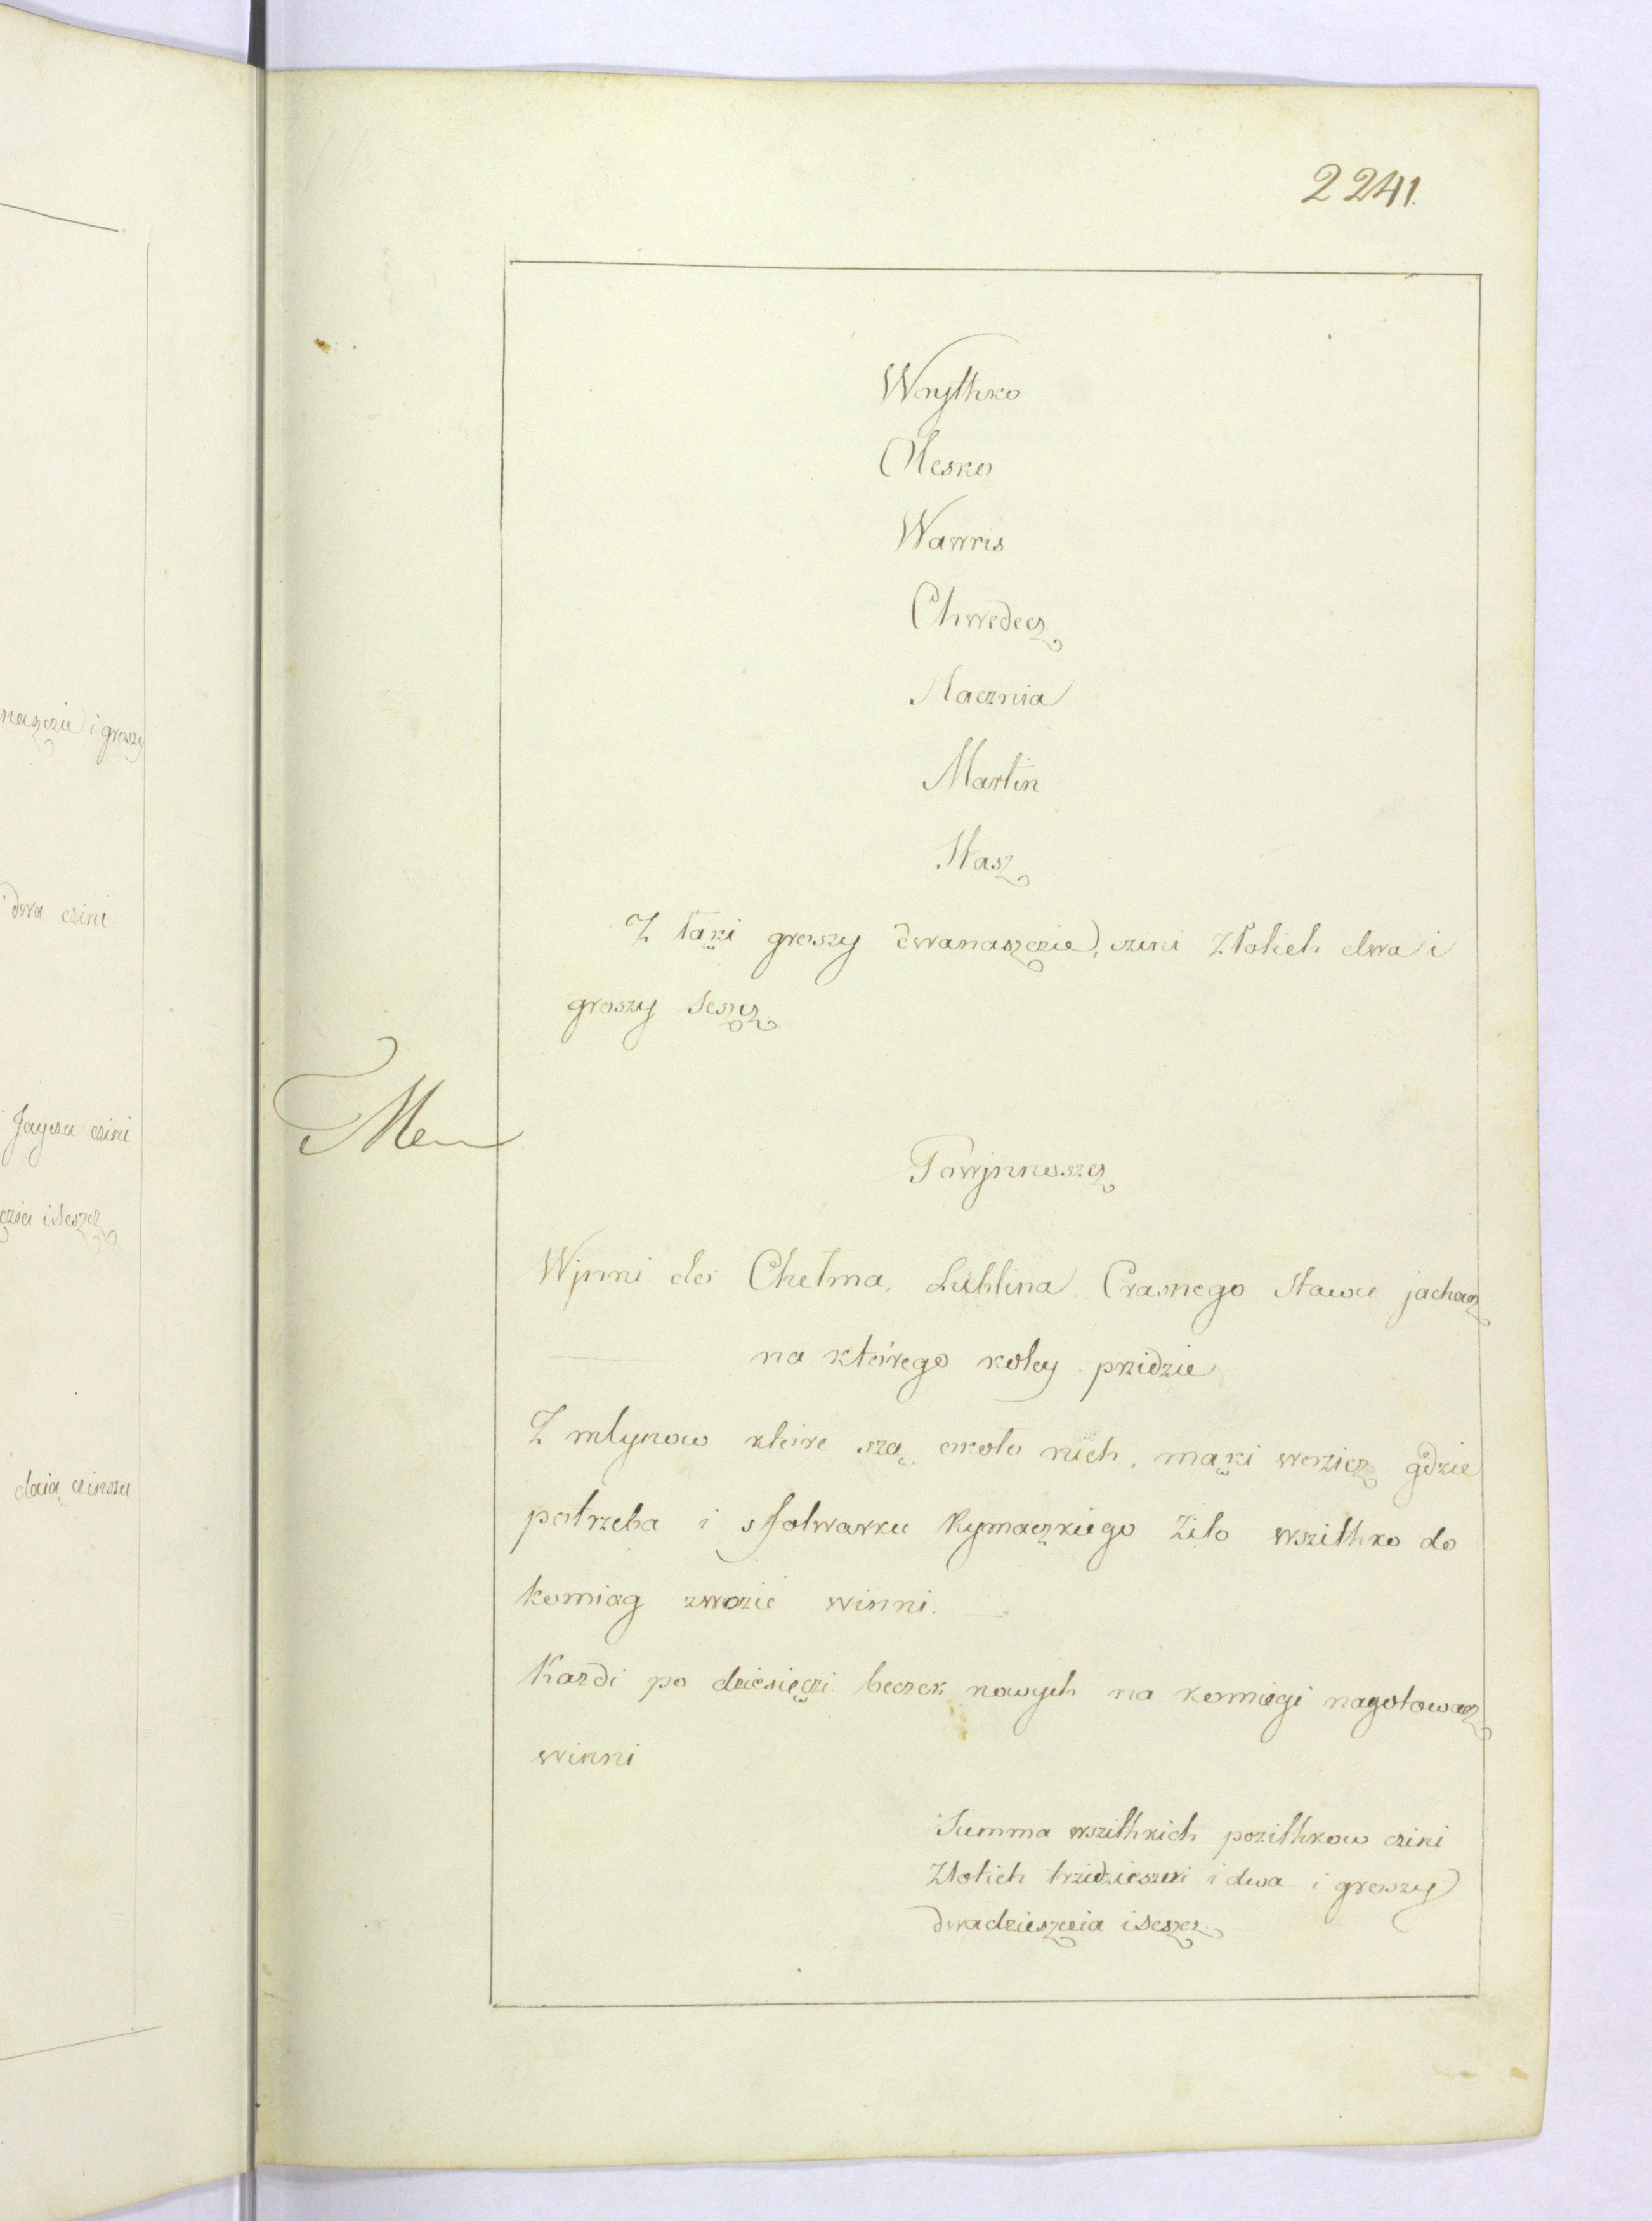 naszczie i groszy
dwa czini
Jaycza czini
czia i sescz
daią czinszu
2241.
Wnythko
Olesko
Wawris
Chwedecz
Hacznia
Martin
Stasz
Z łąki groszy dwanaszczie, czini Złotich dwa i
groszy seszcz
Powjnnoszcz
Wjnni do Chełma, Lublina Crasnego Stawu jachacz
na którego koley przidzie
Z młynow które szą około nich, mąki wozicz gdzie
potrzeba i s folwarku Rymaczkiego Zito wszithko do
komiag zwozić winni.
Kazdi po dziesięczi beczek nowych na komiegi nagotowacz
winni
Summa wszithkich pozithkow czini
Złotich trzidzieszczi i dwa i groszy
dwadzieszczia i seszcz